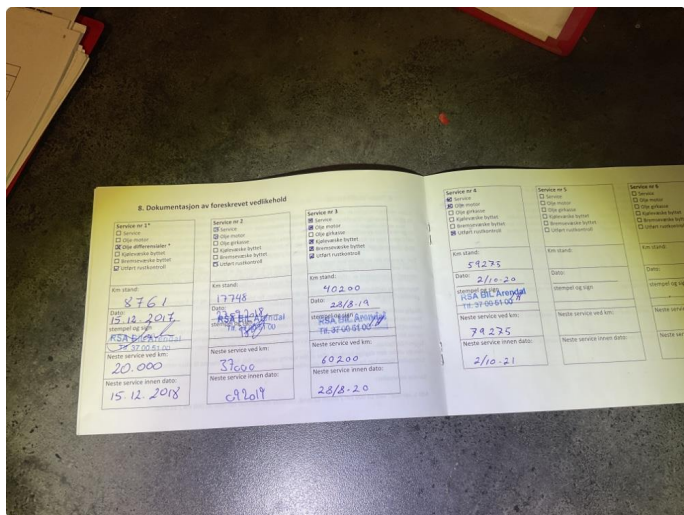 8. Dokumentasjon av foreskrevet vedlikehold
Service nr 1*
Service
Olje motor
Olje differensialer *
Kjølevæske byttet
Bremsevæske byttet
Utført rustkontroll
Km stand:
8761
Dato:
15.12.2017
stempel og sign
RSA BIL Arendal
Tlf. 37 00 51 00
Neste service ved km:
20.000
Neste service innen dato:
15.12.2018
Service nr 2
Service
Olje motor
Olje girkasse
Kjølevæske byttet
Bremsevæske byttet
Utført rustkontroll
Km stand:
17748
Dato:
RSA BIL Arendal
Neste service ved km:
37000
Neste service innen dato:
092019
Service nr 3
Service
Olje motor
Olje girkasse
Kjølevæske byttet
Bremsevæske byttet
Utført rustkontroll
Km stand:
40200
Dato:
28/8-19
RSA BIL Arendal
Tlf. 37 00 51 00
Neste service ved km:
60200
Neste service innen dato:
28/8-20
Service nr 4
Service
Olje motor
Olje girkasse
Kjølevæske byttet
Bremsevæske byttet
Utført rustkontroll
Km stand:
59275
Dato:
2/10-20
stempel og sign
RSA BIL Arendal
Tlf. 37 00 51 00
Neste service ved km:
79275
Neste service innen dato:
2/10-21
Service nr 5
Service
Olje motor
Olje girkasse
Kjølevæske byttet
Bremsevæske byttet
Utført rustkontroll
Km stand:
Dato:
stempel og sign
Neste service ved km:
Neste service innen dato:
Service nr 6
Service
Olje motor
Olje girkasse
Kjølevæske byttet
Bremsevæske byttet
Utført rustkontroll
Km stand:
Dato:
stempel og sign
Neste
Neste service